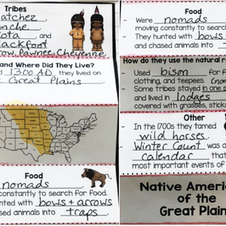 Tribes
Natchez
anche
kota and
lackfoot
Crow, Pawnee, Cheyenne
and Where Did They Live?
1300 AD they lived on
Great Plains
Food
nomads
constantly to search for food.
hunted with bows + arrows
sed animals into traps.
Food
Were nomads
moving constantly to search
They hunted with bows
and chased animals into
How do they use the natural r
Used bison for
clothing, and teepees.
Some tribes stayed in one
and lived in lodges
covered with grasses, sticks
Other
In the 1700s they tamed
wild horses.
Winter Count was a
calendar that
most important events of
Native America
of the
Great Plain